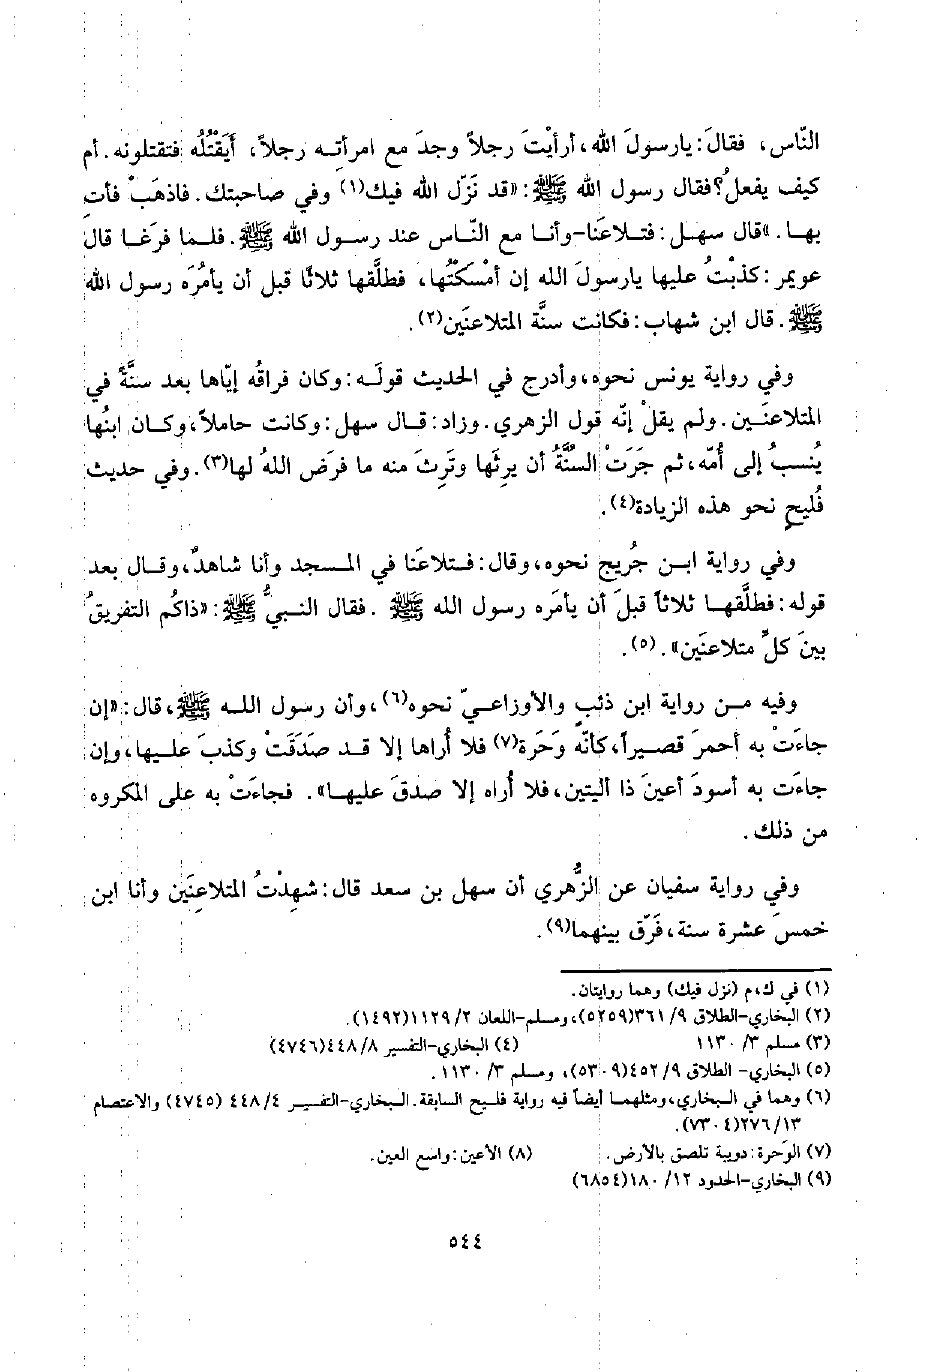 النّاس، فقالَ: يارسولَ الله، أرأيْتَ رجلاً وجدَ مع امرأتِـه رجلاً، أَيَقْتُلُه فتقتلونه. أم
كيف يفعلُ؟ فقال رسول الله ﷺ: «قد نَزّل الله فيك(١) وفي صاحبتك. فاذهَبْ فأتِ
بهـا. »قال سهـل: فتـلاعَنا-وأنـا مع النّـاس عند رسـول الله ﷺ. فلـما فرَغـا قال
عويمر: كذبْتُ عليها يارسولَ الله إن أمْسَكْتُها، فطلَّقها ثلاثًا قبل أن يأمُرَه رسول الله
ﷺ. قال ابن شهاب: فكانت سنَّة المتلاعنَين(٢).
وفي رواية يونس نحوه، وأدرج في الحديث قولَـه: وكان فراقُه إيّاها بعـد سنَّةً في
المتلاعنَـين. ولم يقلْ إنّه قول الزهري. وزاد: قـال سهـل: وكانت حاملاً، وكـان ابنُها
يُنسبُ إلى أُمّه، ثم جَرَتْ السُنَّةُ أن يرِثَها وتَرِثَ منه ما فرَض اللهُ لها(٣). وفي حديث
فُليحٍ نحو هذه الزيادة(٤).
وفي رواية ابـن جُريج نحوه، وقال: فـتلاعَنا في المـسجد وأنا شاهدٌ، وقـال بعد
قوله: فطلَّقهـا ثلاثاً قبلَ أن يأمَره رسول الله ﷺ. فقال النبيُّ ﷺ: «ذاكُم التفريقُ
بينَ كلِّ متلاعنَين». (٥).
وفيه مـن رواية ابن ذئبٍ والأوزاعـيّ نحوه(٦)، وأن رسول اللـه ﷺ، قال: «إن
جاءَتْ به أحمرَ قصيراً، كأنّه وَحَرة(٧) فلا أُراها إلا قـد صدَقَتْ وكذبَ علـيها، وإن
جاءَت به أسودَ أعينَ ذا أليتين، فلا أُراه إلا صدقَ عليهـا». فجاءَتْ به على المكروه
من ذلك.
وفي رواية سفيان عن الزُّهري أن سهل بن سعد قال: شهِدْتُ المتلاعِنَين وأنا ابن
خمسَ عشرة سنة، فَرّق بينهما(٩).
(١) في ك، م (نزل فيك) وهما روايتان.
(٢) البخاري-الطلاق ٩/ ٣٦١(٥٢٥٩)، ومسلم-اللعان ٢/ ١١٢٩(١٤٩٢).
(٣) مسلم ٣/ ١١٣٠ (٤) البخاري-التفسير ٨/ ٤٤٨(٤٧٤٦)
(٥) البخاري- الطلاق ٩/ ٤٥٢(٥٣٠٩)، ومسلم ٣/ ١١٣٠.
(٦) وهما في البخاري، ومثلهمـا أيضاً فيه رواية فليح السابقة. البخاري-التفسـير ٤/ ٤٤٨ (٤٧٤٥) والاعتصام
١٣/ ٢٧٦(٧٣٠٤).
(٧) الوَحرة: دويبة تلصق بالأرض. (٨) الأعين: واسع العين.
(٩) البخاري-الحدود ١٢/ ١٨٠(٦٨٥٤)
٥٤٤